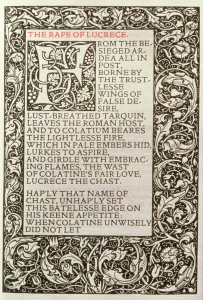 THE RAPE OF LUCRECE.
FROM THE BE-
SIEGED AR-
DEA ALL IN
POST,
BORNE BY
THE TRUST-
LESSE
WINGS OF
FALSE DE-
SIRE,
LUST-BREATHED TARQUIN,
LEAVES THE ROMAN HOST
AND TO COLATIUM BEARES
THE LIGHTLESSE FIRE,
WHICH IN PALE EMBERS HID,
LURKES TO ASPIRE,
AND GIRDLE WITH EMBRAC-
ING FLAMES, THE WAST
OF COLATINE'S FAIR LOVE,
LUCRECE THE CHAST.
HAP'LY THAT NAME OF
CHAST, UNHAP'LY SET
THIS BATELESSE EDGE ON
HIS KEENE APPETITE:
WHEN COLATINE UNWISELY
DID NOT LET